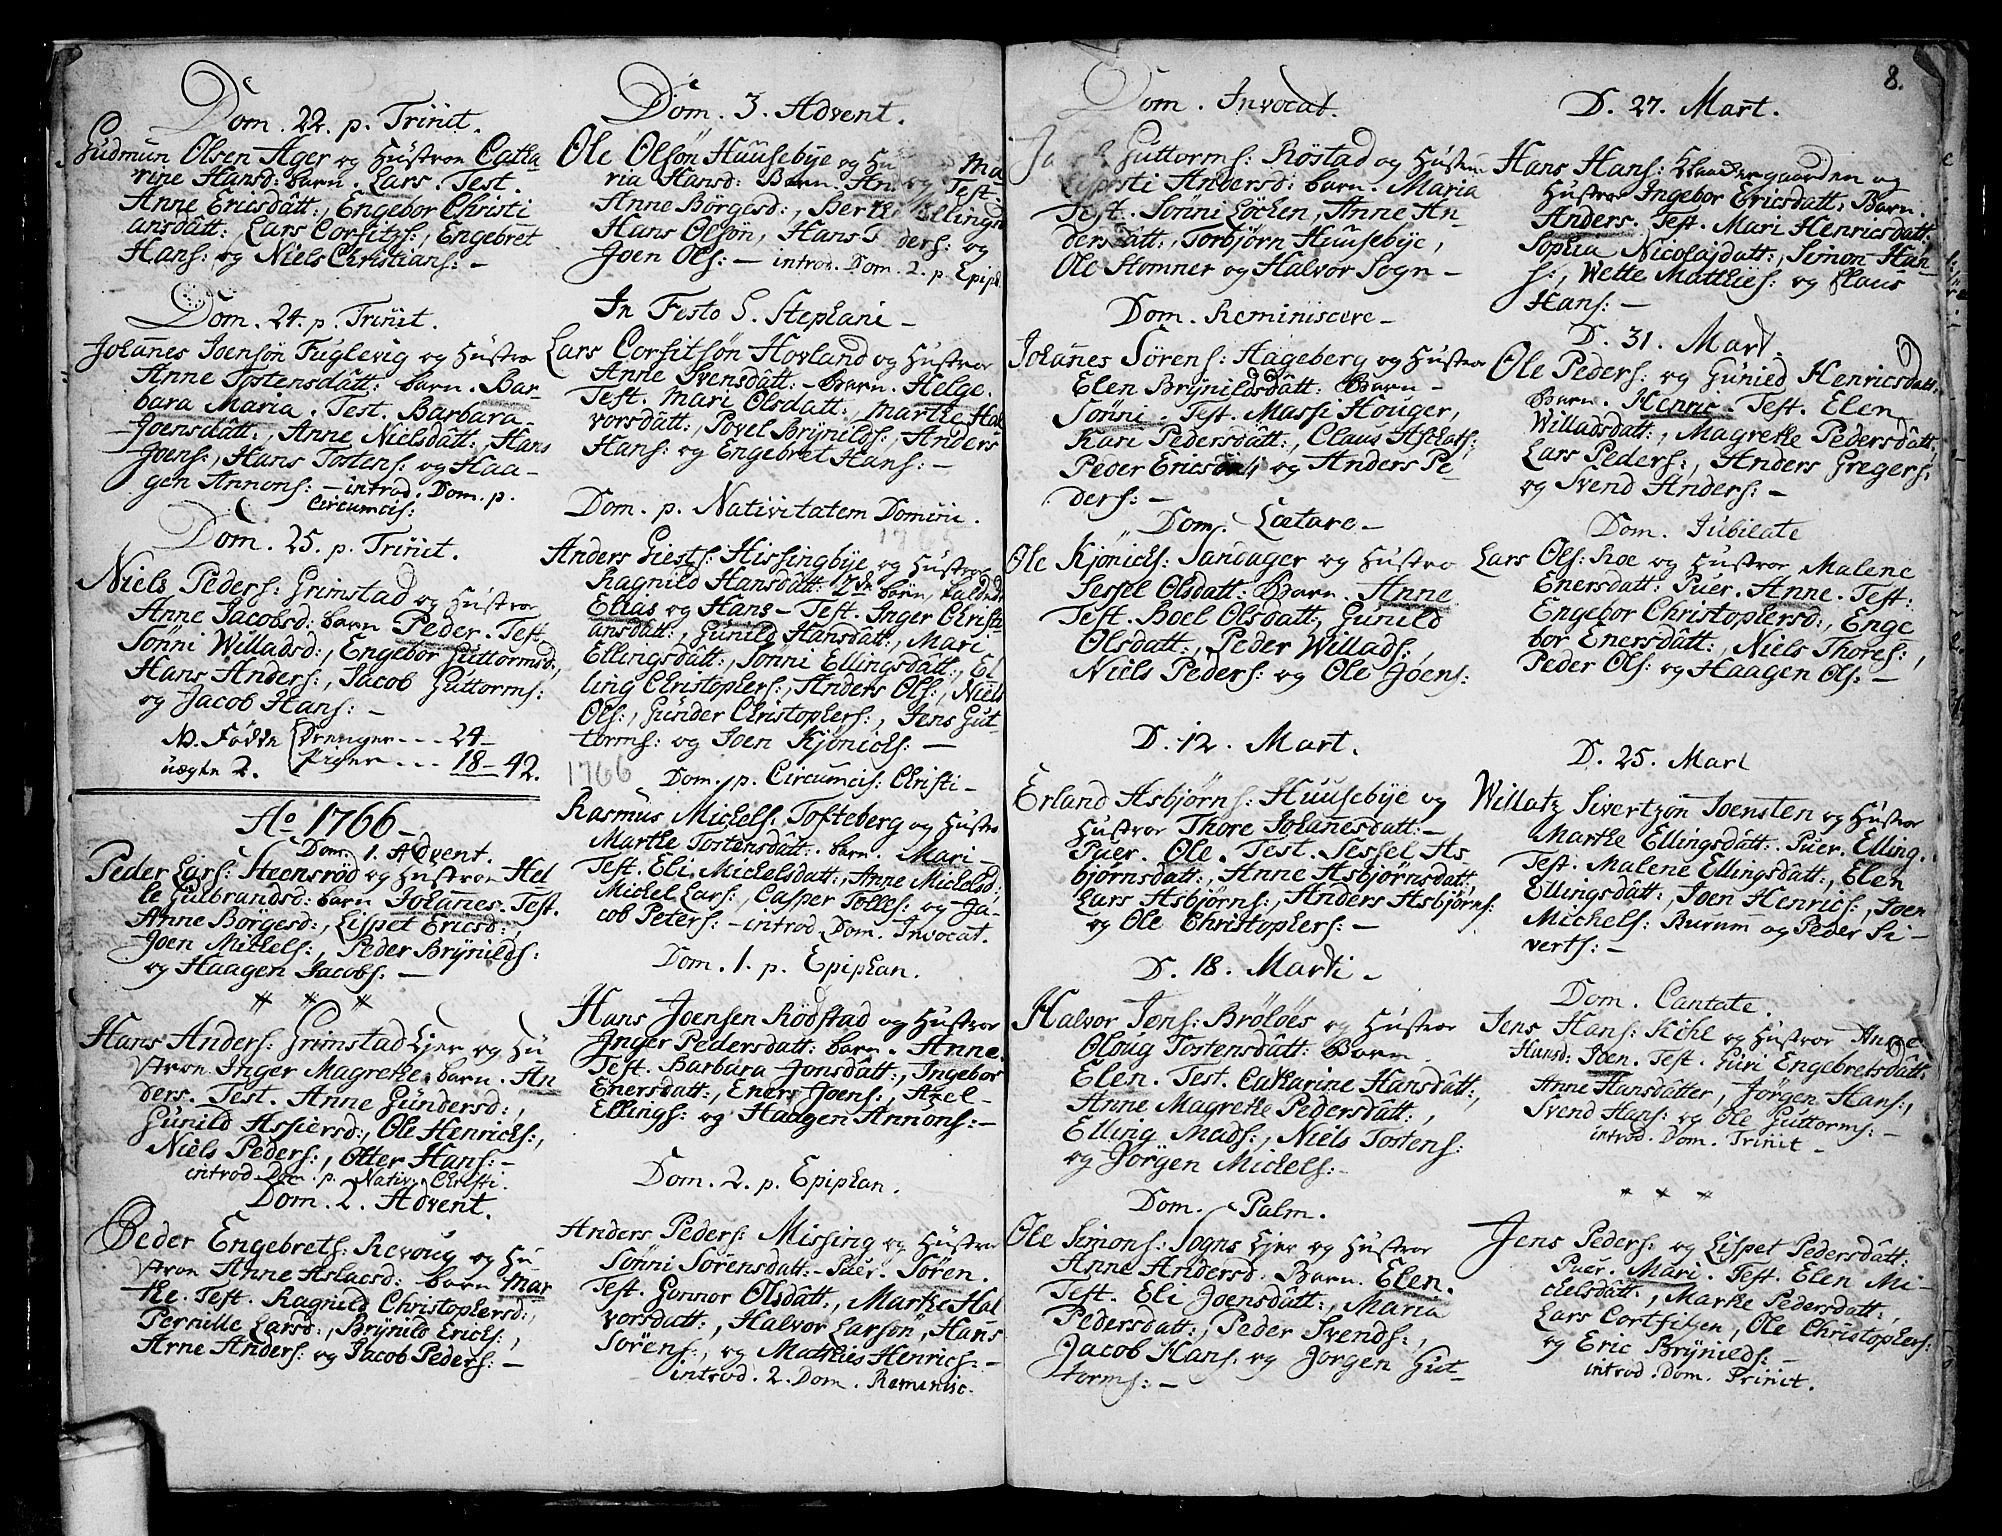 Dom. 22. p. Trinit.
Gudmun Olsen Ager og Hustroe Catha
rine Hansd: barn. Lars. Test.
Anne Ericsdatt:, Engebor Christi
ansdatt: Lars Corfitzs:, Engebret
Hans: og Niels Christians: -
Dom. 24. p. Trinit.
Johannes Joensøn Fuglevig og Hustroe
Anne Tostensdatt: barn. Bar-
bara Maria. Test. Barbara
Joensdatt:, Anne Nielsdatt:, Hans
Joens:, Hans Tostens: og Haa-
gen Annons: - introd. Dom. p.
Circumcis:
Dom. 25. p. Trinit.
Niels Peders: Grimstad og Hustroe
Anne Jacobsd: barn Peder. Test.
Sønni Willadsd:, Engebor Guttormsd:,
Hans Anders:, Jacob Guttorms:
og Jacob Hans: -
N. Fødde Drenger - - - 24 -
uægte 2. Piger - - - 18 - 42.
Ao 1766 -
Dom. 1. Advent.
Peder Lars: Steensrød og Hustroe Hel-
le Gulbrandsd: barn Johannes. Test.
Anne Børgesd:, Lispet Ericsd:,
Joen Mickels:, Peder Brynilds:
og Haagen Jacobs: -
* * *
Hans Anders: Grimstad Ejer og Hu
stroe Inger Magrethe. barn. An
ders. Test. Anne Gundersd:,
Gunild Aspiersd:, Ole Henrichs:,
Niels Peders:, Otter Hans: -
introd. Dom. p. Nativ. Christi.
Dom. 2. Advent.
Peder Engebrets: Revoug og Hu
stroe Anne Aslacsd: barn Mar
the. Test. Ragnild Christophersd:,
Pernille Larsd:, Brynild Erichs:,
Arne Anders: og Jacob Peders: -
Dom. 3. Advent.
Ole Olsøn Huusebye og Hu Ma
ria Hansd: Barn. An Test.
Anne Børgesd:, Berthe Ellingsd
Hans Olsøn, Hans ders: og
Joen Ols: - introd. Dom. 2. p. Epiph.
In Festo S. Stephani -
Lars Corfitsøn Hovland og Hustroe
Anne Svensdatt: - Barn. Helge.
Test. Mari Olsdatt:, Marthe Hal
vorsdatt:, Povel Brynilds:, Anders
Hans: og Engebret Hans: -
Dom. p. Nativitatem Domini.
1765
Anders Giests: Hissingbye og Hustroe
Ragnild Hansdatt: 2de børn, kaldede
Elias og Hans - Test. Inger Christi
ansdatt:, Gunild Hansdatt:, Mari
Ellingsdatt:, Sønni Ellingsdatt:, El
ling Christophers:, Anders Ols:, Niels
Ols:, Gunder Christophers:, Jens Gut
torms: og Joen Kjønicks: -
1766 Dom. p. Circumcis: Christi -
Rasmus Mickels: Tofteberg og Hustroe
Marthe Tostensdatt: barn. Mari -
Test. Eli Mickelsdatt:, Anne Mickelsd:
Mickel Lars:, Casper Tolles: og Ja-
cob Peters: - introd. Dom. Invocat.
Dom. 1. p. Epiphan.
Hans Joensen Rødstad og Hustroe
Inger Pedersdatt: barn. Anne.
Test. Barbara Jonsdatt:, Ingebor
Enersdatt:, Eners Joens:, Axel -
Ellings: og Haagen Annons: -
Dom. 2. p. Epiphan.
Anders Peders: Missing og Hustroe
Sønni Sørensdatt: - Puer. Søren.
Test. Gunnor Olsdatt:, Marthe Hal
vorsdatt:, Halvor Larsøn, Hans
Sørens:, og Mathies Henrics: -
introd. 2. Dom. Reminisc.
8.
Dom. Invocat.
Guttorms: Røstad og Hustroe
Andersd: barn. Maria
Test. Sønni Løcken, Anne An-
dersdatt:, Torbjørn Huusebye,
Ole Stomner og Halvor Sogn -
Dom. Reminiscere -
Johannes Sørens: Hageberg og Hustroe
Elen Brynildsdatt: Barn -
Sønni. Test. Massi Houger,
Kari Pedersdatt:, Claus Aschats:,
Peder Erics og Anders Pe-
ders: -
Dom. Lætare -
Ole Kjønicks: Sandager og Hustroe
Sessel Olsdatt: Barn. Anne.
Test. Boel Olsdatt, Gunild
Olsdatt:, Peder Willads:,
Niels Peders: og Ole Joens:
D. 12. Mart.
Erland Asbjørns: Huusebye og
Hustroe Thore Johannesdatt: -
Puer. Ole. Test. Sessel As
bjørnsdatt:, Anne Asbjørnsdatt,
Lars Asbjørns:, Anders Asbjørns:
og Ole Christophers: -
D. 18. Marti -
Halvor Jens: Brøløes og Hustroe
Oloug Tostensdatt: Barn
Elen. Test. Catharine Hansdatt:,
Anne Magrethe Pedersdatt:,
Elling Mads:, Niels Tostens:
og Jørgen Mickels: -
Dom. Palm.
Ole Simons: Sogns Ejer og Hustroe
Anne Andersd. Barn. Elen.
Test. Eli Joensdatt:, Maria
Pedersdatt:, Peder Svends:,
Jacob Hans. og Jørgen Gut-
torms: -
D. 27. Mart.
Hans Hans: Haandergaarden og
Hustroe Ingebor Ericsdatt: Barn.
Anders. Test. Mari Henricsdatt:
Sophia Nicolajdatt:, Simon Han-
s:, Wette Matthies: og Claus
Hans: -
D. 31. Mart.
Ole Peders: og Gunild Henricsdatt:
Barn. Henric. Test. Elen
Willadsdatt:, Magrethe Pedersdatt,
Lars Peders:, Anders Gregers:
og Svend Anders: -
Dom. Jubilate
Lars Ols: Roe og Hustroe Malene
Enersdatt: Puer. Anne. Test:
Engebor Christophersd:, Enge
bor Enersdatt:, Niels Thores:,
Peder Ols: og Haagen Ols. -
D. 25. Mart
Willatz Sivertzøn Joensten og Hustroe
Marthe Ellingsdatt: Puer. Elling.
Test. Malene Ellingsdatt:, Elen
Ellingsdatt:, Joen Henrics:, Joen
Michels: Burum og Peder Si -
verts: -
Dom. Cantate.
Jens Hans: Kihl og Hustroe Anne
Hansd: Joen. Test. Guri Engebretsdatt:
Anne Hansdatter, Jørgen Hans:,
Svend Hans: og Ole Guttorms: -
introd. Dom. Trinit -
* * *
Jens Peders: og Lispet Pedersdatt:
Puer. Mari. Test. Elen Mi -
ckelsdatt:, Marthe Pedersdatt:,
Lars Cortfitzen, Ole Christophers:
og Eric Brynilds: -
introd. Dom. Trinit.